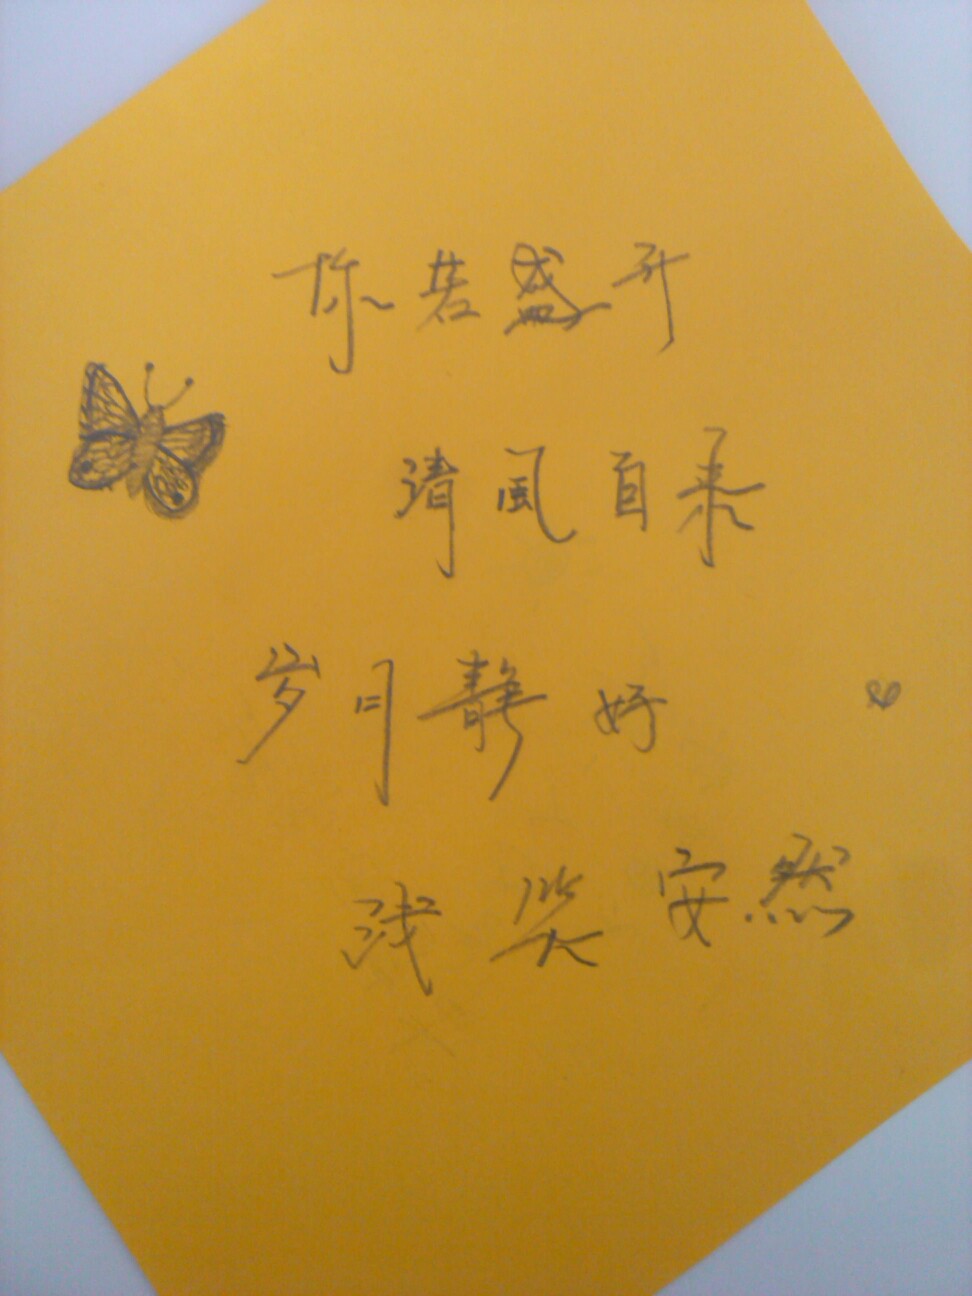 你若盛开
清風自来
岁月静好
浅笑安然